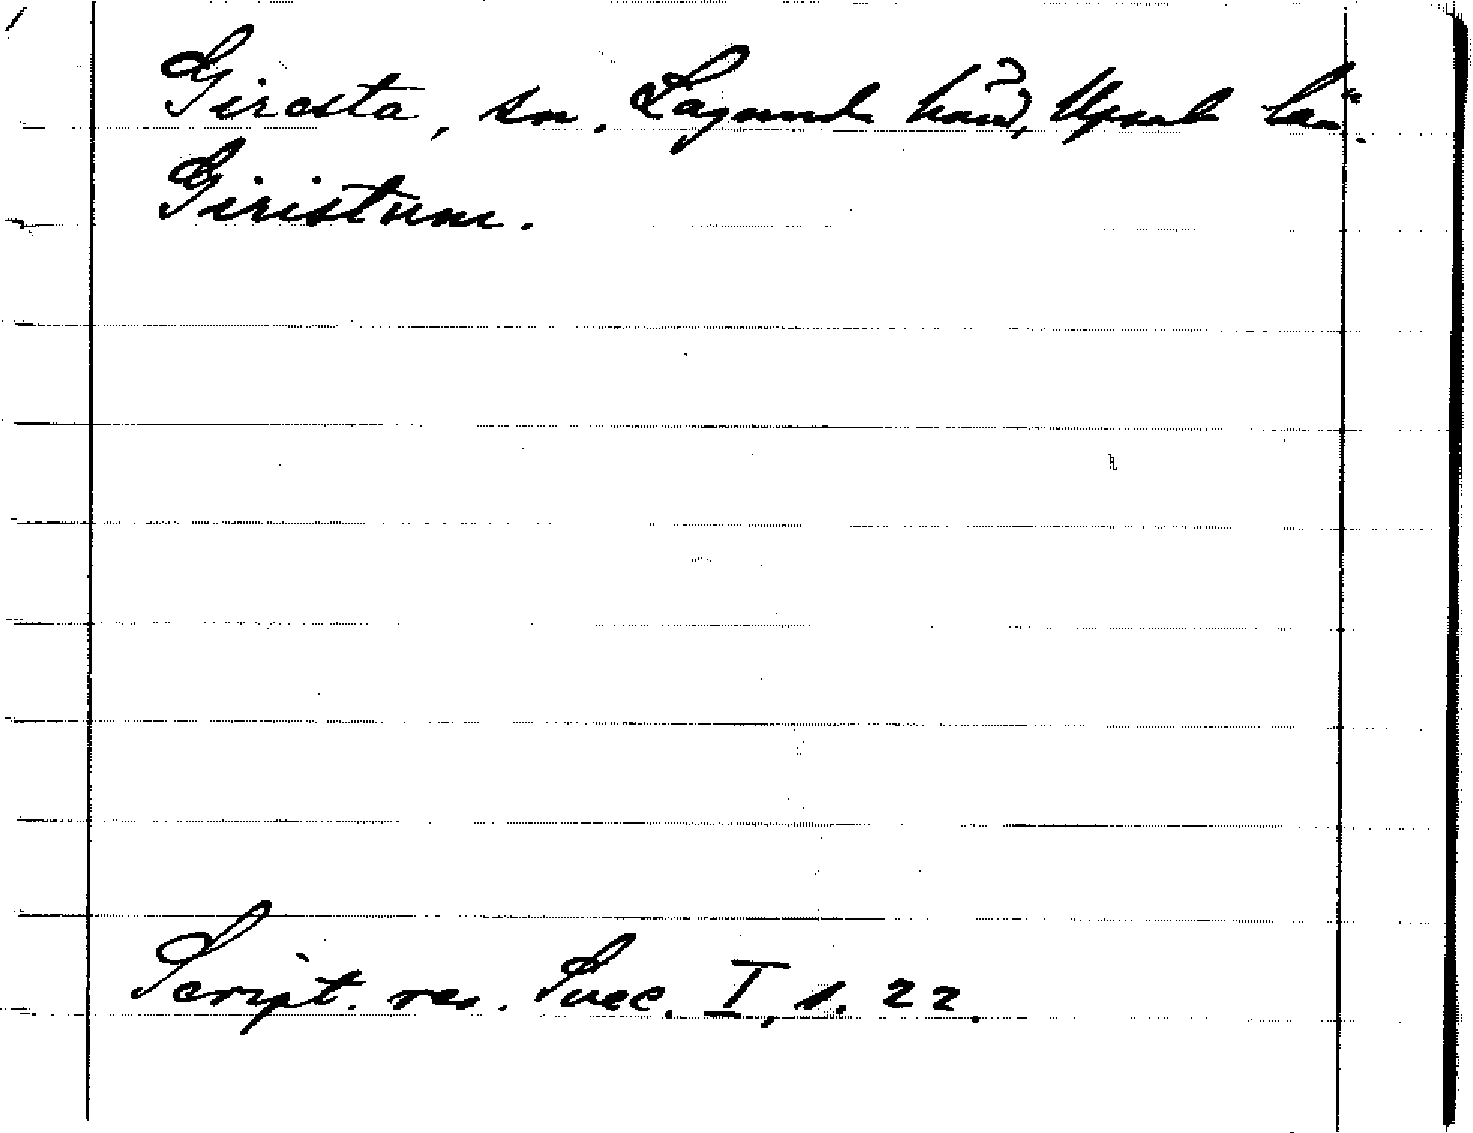 Giresta, sn. Lagunda härad, Upsala län.
Giristum.
Script. rer. Svec. I, s. 22.